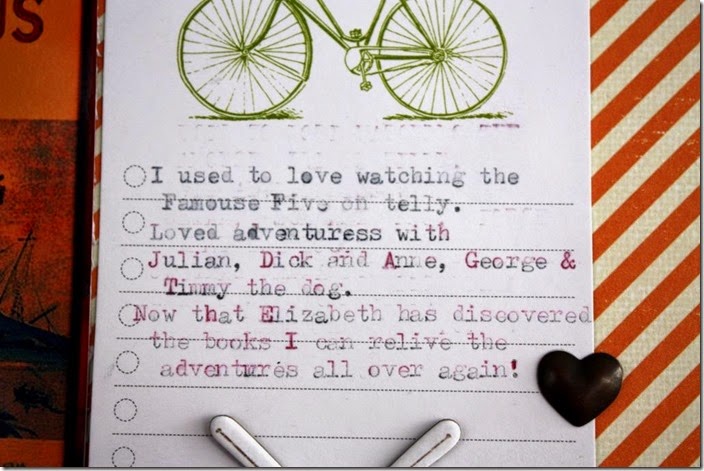 US
I used to love watching the
Famouse Five on telly.
Loved adventuress with
Julian, Dick and Anne, George &
Timmy the dog.
Now that Elizabeth has discovered
the books I can relive the
adventures all over again!